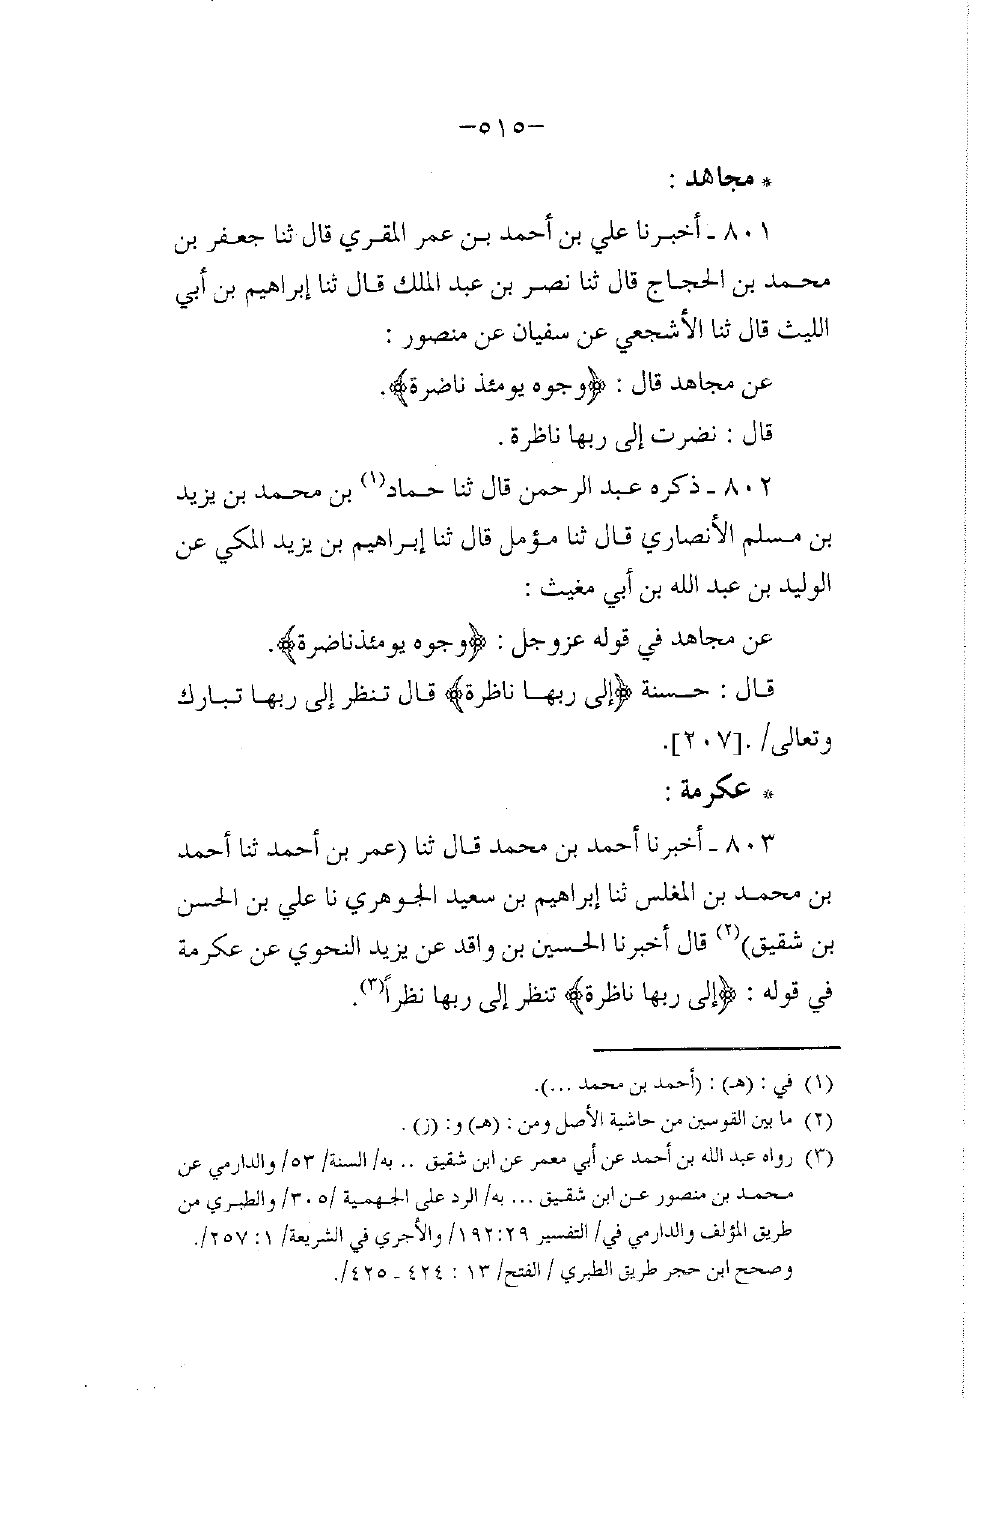 -٥١٥-
* مجاهد :
٨٠١ ـ أخبرنا علي بن أحمد بن عمر المقري قال ثنا جعفر بن
محمد بن الحجاج قال ثنا نصر بن عبد الملك قال ثنا إبراهيم بن أبي
الليث قال ثنا الأشجعي عن سفيان عن منصور :
عن مجاهد قال : ﴿وجوه يومئذ ناضرة﴾.
قال : نضرت إلى ربها ناظرة .
٨٠٢ ـ ذكره عبد الرحمن قال ثنا حماد(١) بن محمد بن يزيد
بن مسلم الأنصاري قال ثنا مؤمل قال ثنا إبراهيم بن يزيد المكي عن
الوليد بن عبد الله بن أبي مغيث :
عن مجاهد في قوله عزوجل : ﴿وجوه يومئذناضرة﴾.
قال : حسنة ﴿إلى ربها ناظرة﴾ قال تنظر إلى ربها تبارك
وتعالى/ .[٢٠٧].
* عكرمة :
٨٠٣ ـ أخبرنا أحمد بن محمد قال ثنا (عمر بن أحمد ثنا أحمد
بن محمد بن المغلس ثنا إبراهيم بن سعيد الجوهري نا علي بن الحسن
بن شقيق)(٢) قال أخبرنا الحسين بن واقد عن يزيد النحوي عن عكرمة
في قوله : ﴿إلى ربها ناظرة﴾ تنظر إلى ربها نظراً(٣).
(١) في : (هـ) : (أحمد بن محمد ...).
(٢) ما بين القوسين من حاشية الأصل ومن : (هـ) و: (ز) .
(٣) رواه عبد الله بن أحمد عن أبي معمر عن ابن شقيق .. به/ السنة/ ٥٣/ والدارمي عن
محمد بن منصور عن ابن شقيق ... به/ الرد على الجهمية /٣٠٥/ والطبري من
طريق المؤلف والدارمي في/ التفسير ١٩٢:٢٩/ والأجري في الشريعة/ ١: ٢٥٧/.
وصحح ابن حجر طريق الطبري / الفتح/ ١٣ : ٤٢٤ ـ ٤٢٥/.